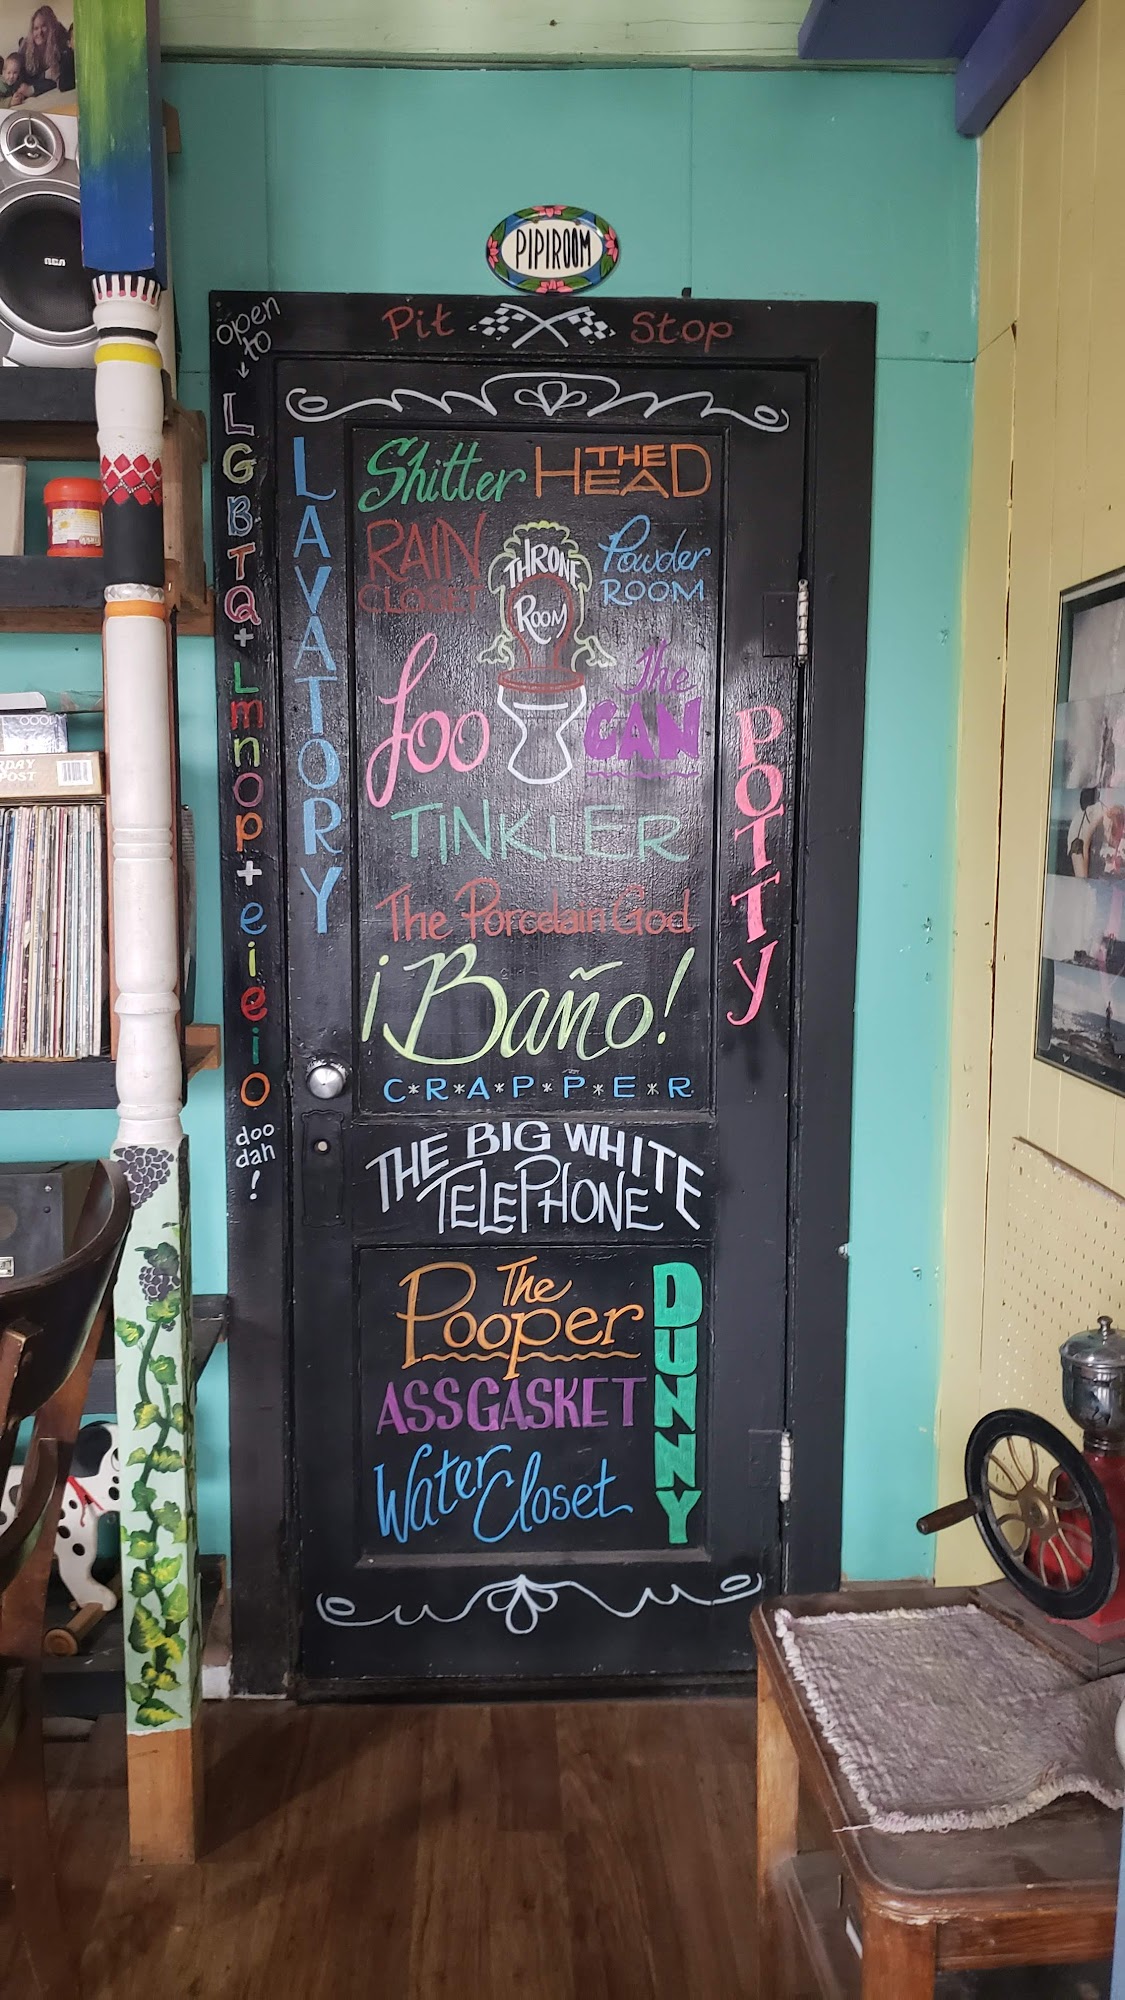 PIPIROOM
Pit Stop
open
to
LGBTQ+Lmnop+eieio
doo
dah
!
LAVATORY
Shitter
THE
HEAD
RAIN
CLOSET
THRONE
ROOM
Powder
ROOM
Loo
The
CAN
POTTy
TiNKLER
The Porcelain God
¡Baño!
C*R*A*P*P*E*R
THE BIG WHITE
TELEPHONE
The
Pooper
DUNNY
ASSGASKET
Water Closet
RCA
RDAY
POST